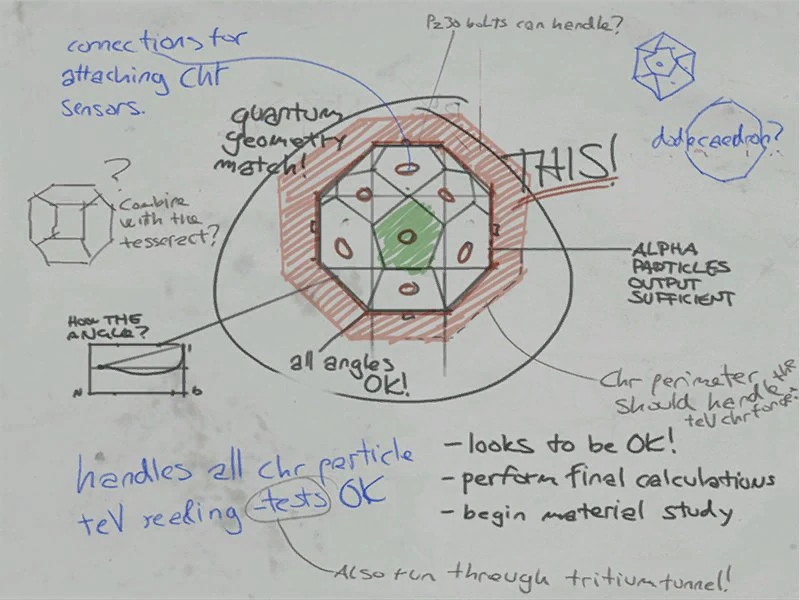 Pz30 bolts can handle?
connections for
attaching Chr
sensors.
quantum
geometry
match!
THIS!
dodecaedron?
?
combine
with the
tesseract?
ALPHA
PARTICLES
OUTPUT
SUFFICIENT
HOW THE
ANGLE?
all angles
OK!
Chr perimeter
should handle the
teV chr force?
handles all chr particle
teV reeding -tests OK
-looks to be OK!
-perform final calculations
-begin material study
Also run through tritium tunnel!